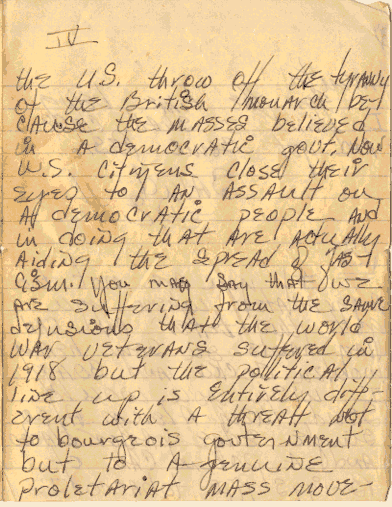 IV
the U.S. throw off the tyranny
of the British monarch be-
clause the masses believed
in a democratic govt. Now
U.S. citizens close their
eyes to an assault on
a democratic people and
in doing that are actually
aiding the spread of fas-
cism. You may say that we
are suffering from the same
delusions that the world
war veterans suffered in
1918, but the political
line up is entirely diff-
erent with a threat not
to bourgeois government
but to a genuine
proletariat mass move-